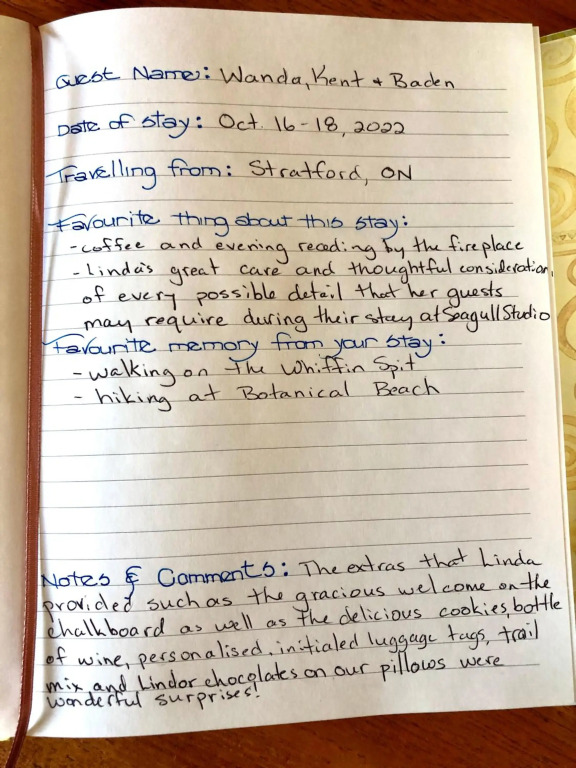 Guest Name: Wanda, Kent + Baden
Date of stay: Oct. 16-18, 2022
Travelling from: Stratford, ON
Favourite thing about this stay:
- coffee and evening reading by the fireplace
- Linda's great care and thoughtful consideration
of every possible detail that her guests
may require during their stay at Seagull Studio
Favourite memory from your stay:
- walking on the Whiffin Spit
- hiking at Botanical Beach
Notes & Comments: The extras that Linda
provided such as the gracious welcome on the
chalkboard as well as the delicious cookies, bottle
of wine, personalised, initialed luggage tags, trail
mix and Lindor chocolates on our pillows were
wonderful surprises!